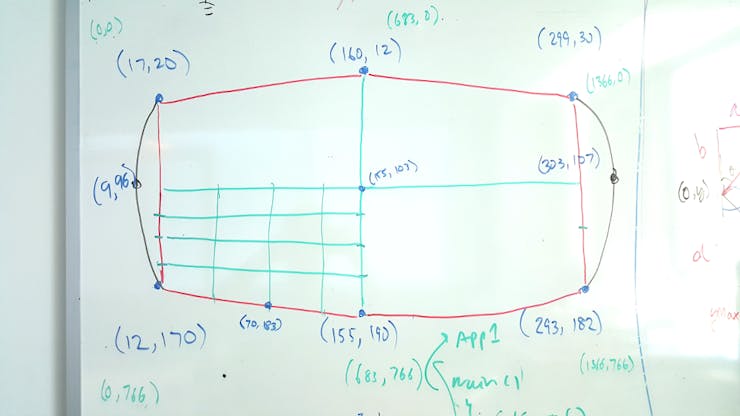 (0,0)
(683,0).
(17,20)
(160,12)
(299,30)
(1366,0)
(9,96)
(155,103)
(303,107)
b
(0,y)
d
(12,170)
(70,183)
(155,190)
(293,182)
APP1
(683,766)
(1366,766)
main()
(0,766)
ymax